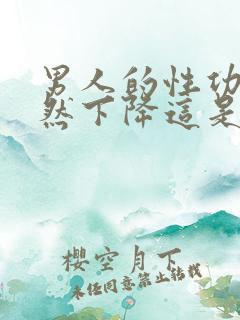 男人的性功
然下降這是
櫻空月下
未任同意禁止轉載